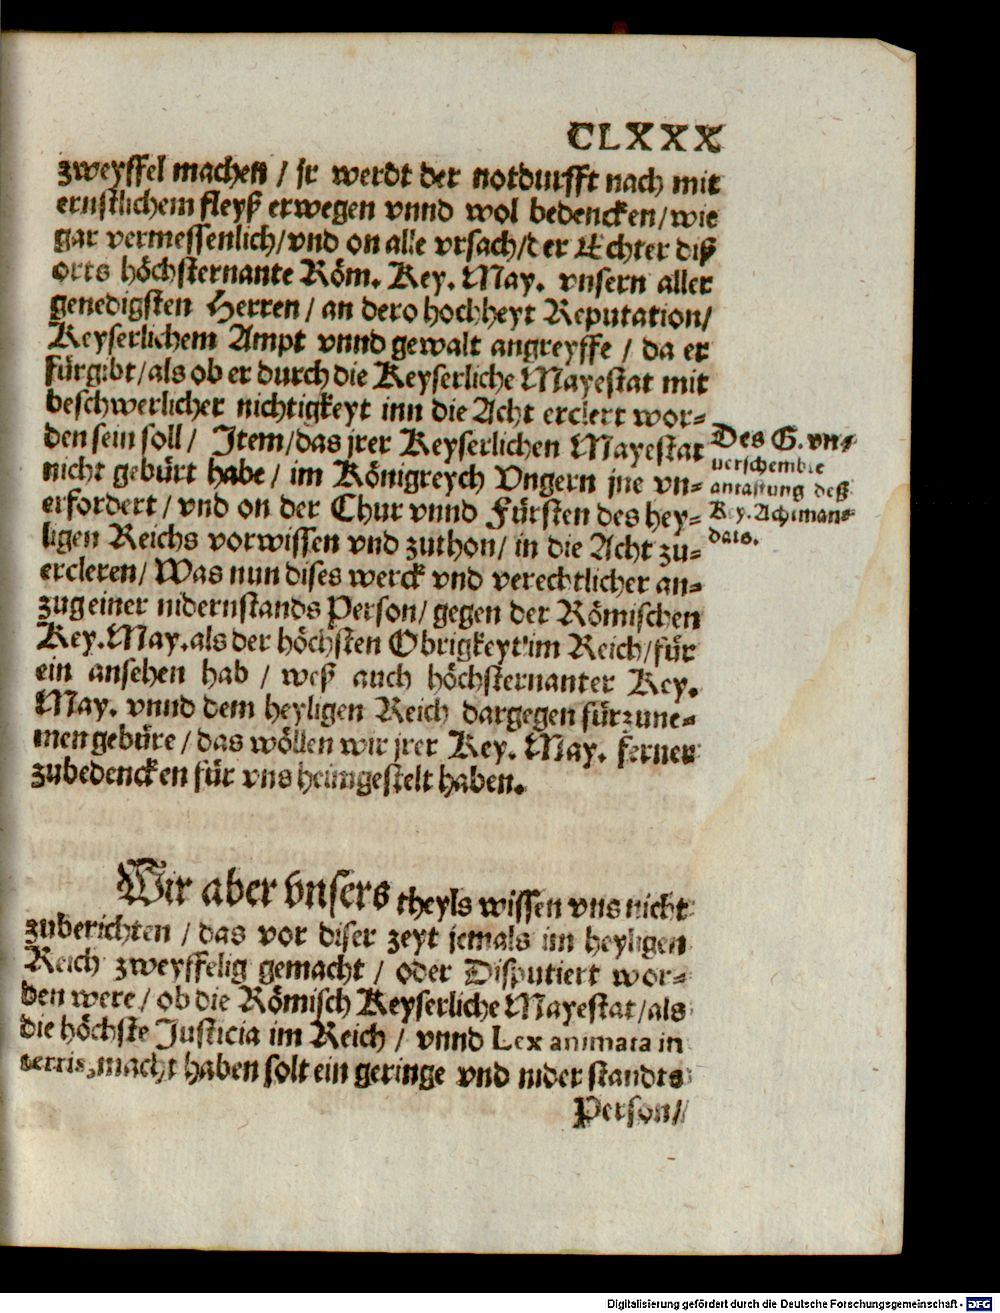 CLXXX
zweyffel machen / jr werdt der notdurfft nach mit
ernstlichem fleyß erwegen vnnd wol bedencken / wie
gar vermessenlich / vnd on alle vrsach / der Echter diß
orts höchsternante Röm. Key. May. vnsern aller
genedigsten Herren / an dero hochheyt Reputation /
Keyserlichem Ampt vnnd gewalt angreyffe / da er
fürgibt / als ob er durch die Keyserliche Mayestat mit
beschwerlicher nichtigkeyt inn die Acht erclert wor-
den sein soll / Item / das jrer Keyserlichen Mayestat
nicht gebürt habe / im Königreych Vngern jne vn-
erfordert / vnd on der Chur vnnd Fürsten des hey-
ligen Reichs vorwissen vnd zuthon / in die Acht zu-
ercleren / Was nun dises werck vnd verechtlicher an-
zug einer nidernstands Person / gegen der Römischen
Key. May. als der höchsten Obrigkeyt im Reich / für
ein ansehen hab / weß auch höchsternanter Key.
May. vnnd dem heyligen Reich dargegen fürzune-
men gebüre / das wöllen wir jrer Key. May. ferner
zubedencken für vns heimgestelt haben.
Des G. vn-
verschembte
antastung deß
Key. Achtman-
dats.
Wir aber vnsers theyls wissen vns nicht
zuberichten / das vor diser zeyt jemals im heyligen
Reich zweyffelig gemacht / oder Disputiert wor-
den were / ob die Römisch Keyserliche Mayestat / als
die höchste Justicia im Reich / vnnd Lex animata in
terris, macht haben solt ein geringe vnd nider standts
Person /
Digitalisierung gefördert durch die Deutsche Forschungsgemeinschaft - DFG